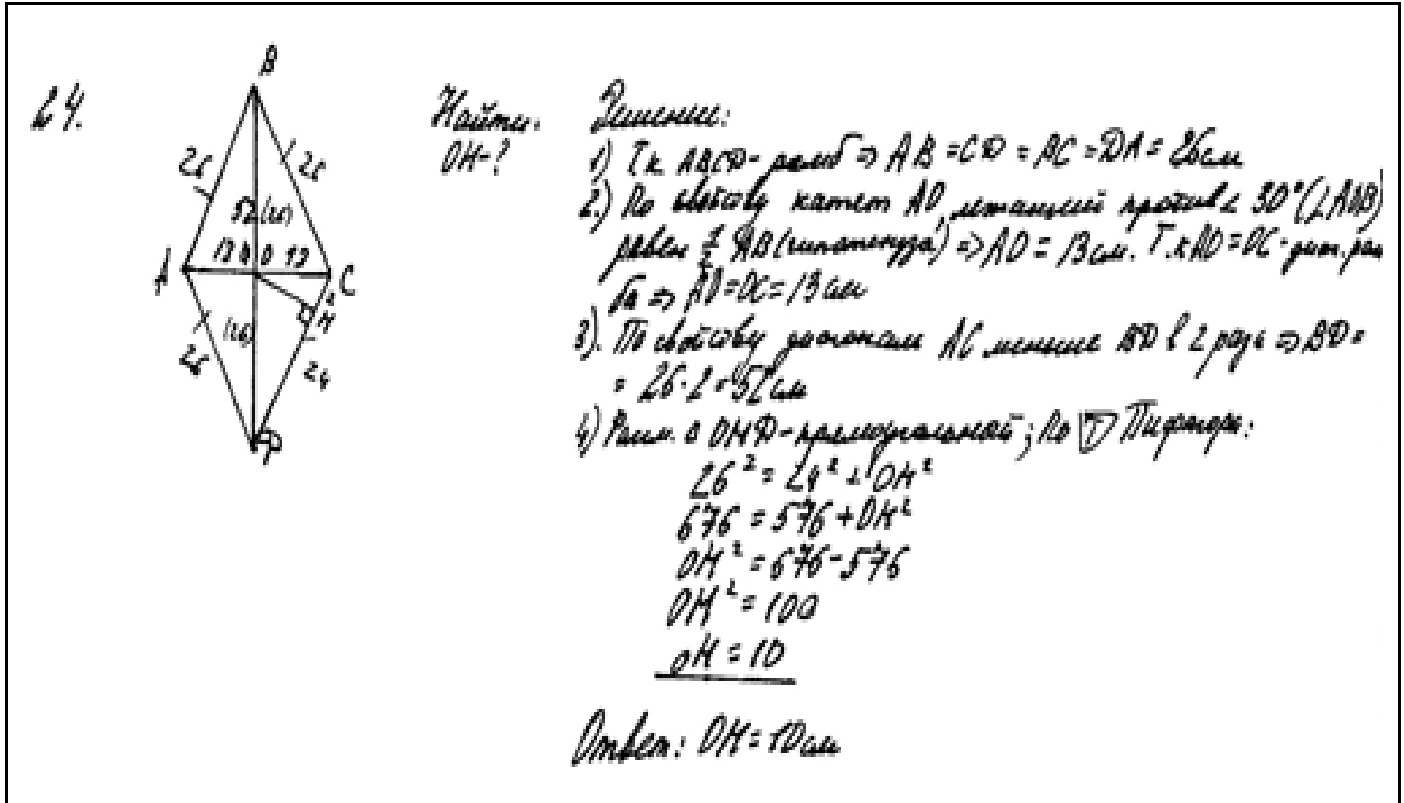 24.
B
26
26
52(26)
A
13
O
13
C
H
(26)
26
24
D
Найти:
OH-?
Решение:
1) Т.к ABCD- ромб ⇒ AB = CD = BC = DA = 26см
2.) По свойству катет AO, лежащий против ∠ 30° (∠AOB)
равен 1/2 AB (гипотенуза) ⇒ AO = 13 см. Т.к AO = OC - диаг. ром
ба ⇒ AO = OC = 13 см
3). По свойству диагонали AC меньше BD в 2 раза ⇒ BD =
= 26·2 = 52см
4) Рассм. ∆ OHD- прямоугольный; По Т Пифагора:
26² = 24² + OH²
676 = 576 + OH²
OH² = 676 - 576
OH² = 100
OH = 10
Ответ: OH = 10 см